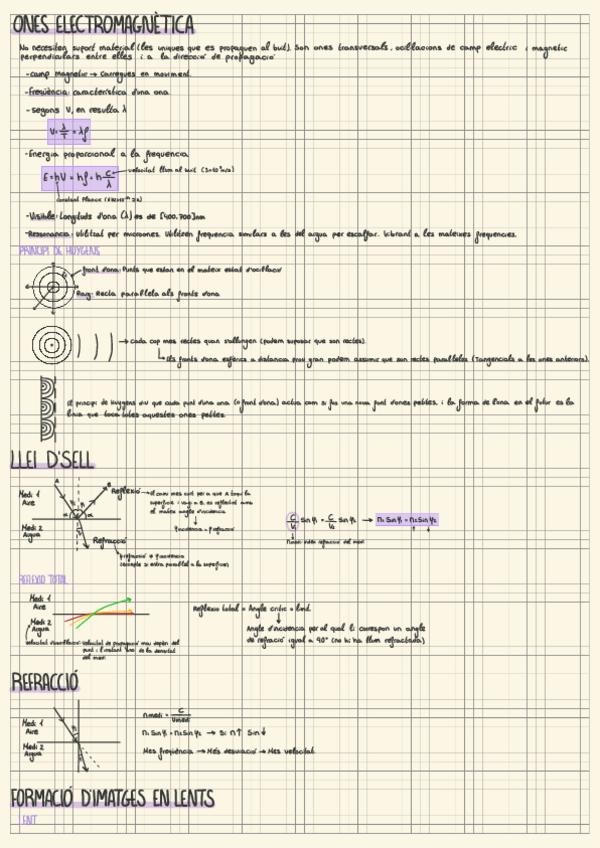 ONES ELECTROMAGNÈTICA
No necesiten suport material (les uniques que es propaguen al buit). Son ones transversals, oscillacions de camp electric i magnetic
perpendiculars entre elles i a la direcció de propagació
-camp magnetic → Carregues en moviment.
-Freqüència: característica d'una ona.
-segons V, en resulta λ
V = λ/T = λƒ
-Energia proporcional a la frequencia
E = hV = hƒ = h C/λ
velocitat llum al buit
constant Planck
-Visible: Longituds d'ona (λ) es de [400,700]nm
-Ressonancia: Utilitzat per microones. Utilitzen frequencia similars a les del aigua per escalfar. Vibrant a les mateixes frequencies.
PRINCIPI DE HUYGENS
Front d'ona: Punts que estan en el mateix estat d'oscil·lació
Raig: Recta paral·lela als fronts d'ona
→ Cada cop mes rectes quan s'allunyen (podem suposar que son rectes).
Els fronts d'ona esferics a distancia prou gran podem assumir que son rectes paral·leles (Tangencials a les ones anteriors).
El principi de Huygens diu que cada punt d'una ona (o front d'ona) actua com si fos una nova font d'ones petites, i la forma de l'ona en el futur es la
línia que toca totes aquestes ones petites.
LLEI D'SELL
Medi 1
Aire
Medi 2
Aigua
A
B
Reflexió
Refracció
C/V₁ Sin φ₁ = C/V₂ Sin φ₂ → n₁ Sin φ₁ = n₂ Sin φ₂
REFLEXIO TOTAL
Medi 1
Aire
Medi 2
Aigua
Reflexio total = Angle critic = limit
Angle d'incidencia per al qual li correspon un angle
de refracció igual a 90° (no hi ha llum refractada)
REFRACCIÓ
Medi 1
Aire
Medi 2
Aigua
n medi = C/V medi
n₁ Sin φ₁ = n₂ Sin φ₂ → Si n↑ Sin↓
Mes freqüència → Més desviació → Mes velocitat
FORMACIÓ D'IMATGES EN LENTS
LENT